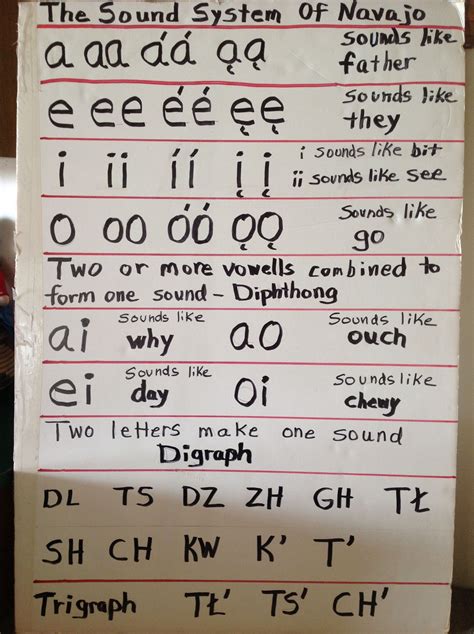 The Sound System Of Navajo
a aa áá ąą sounds like
father
e ee éé ęę sounds like
they
i ii íí įį i sounds like bit
ii sounds like see
o oo óó ǫǫ sounds like
go
Two or more vowells combined to
form one sound - Diphthong
ai sounds like why ao sounds like ouch
ei sounds like day oi sounds like chewy
Two letters make one sound
Digraph
DL TS DZ ZH GH TŁ
SH CH KW K' T'
Trigraph TŁ' TS' CH'